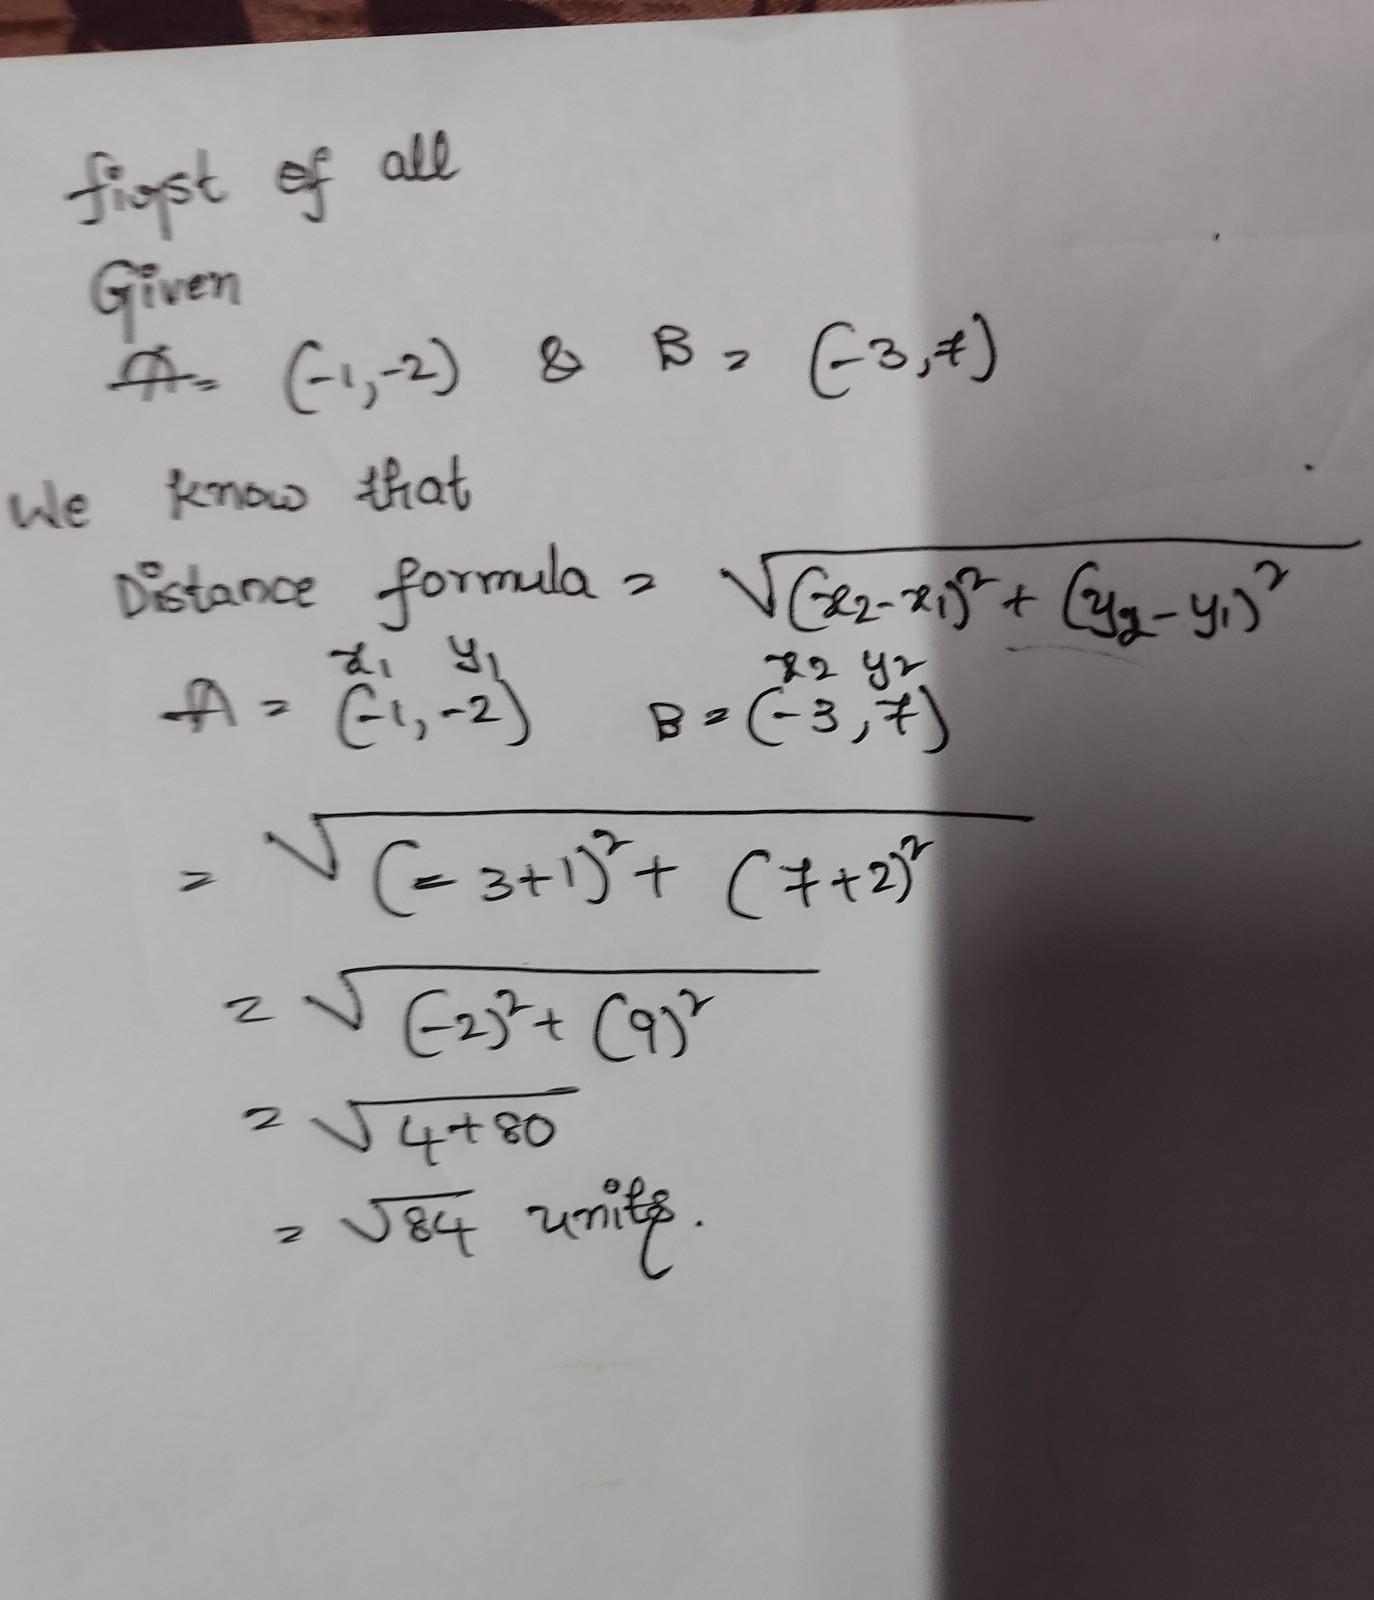 first of all
Given
A = (-1,-2) & B = (-3,7)
We know that
Distance formula = √(x2-x1)² + (y2-y1)²
x1 y1 x2 y2
A = (-1,-2) B = (-3,7)
= √(-3+1)² + (7+2)²
= √(-2)² + (9)²
= √4+80
= √84 units.